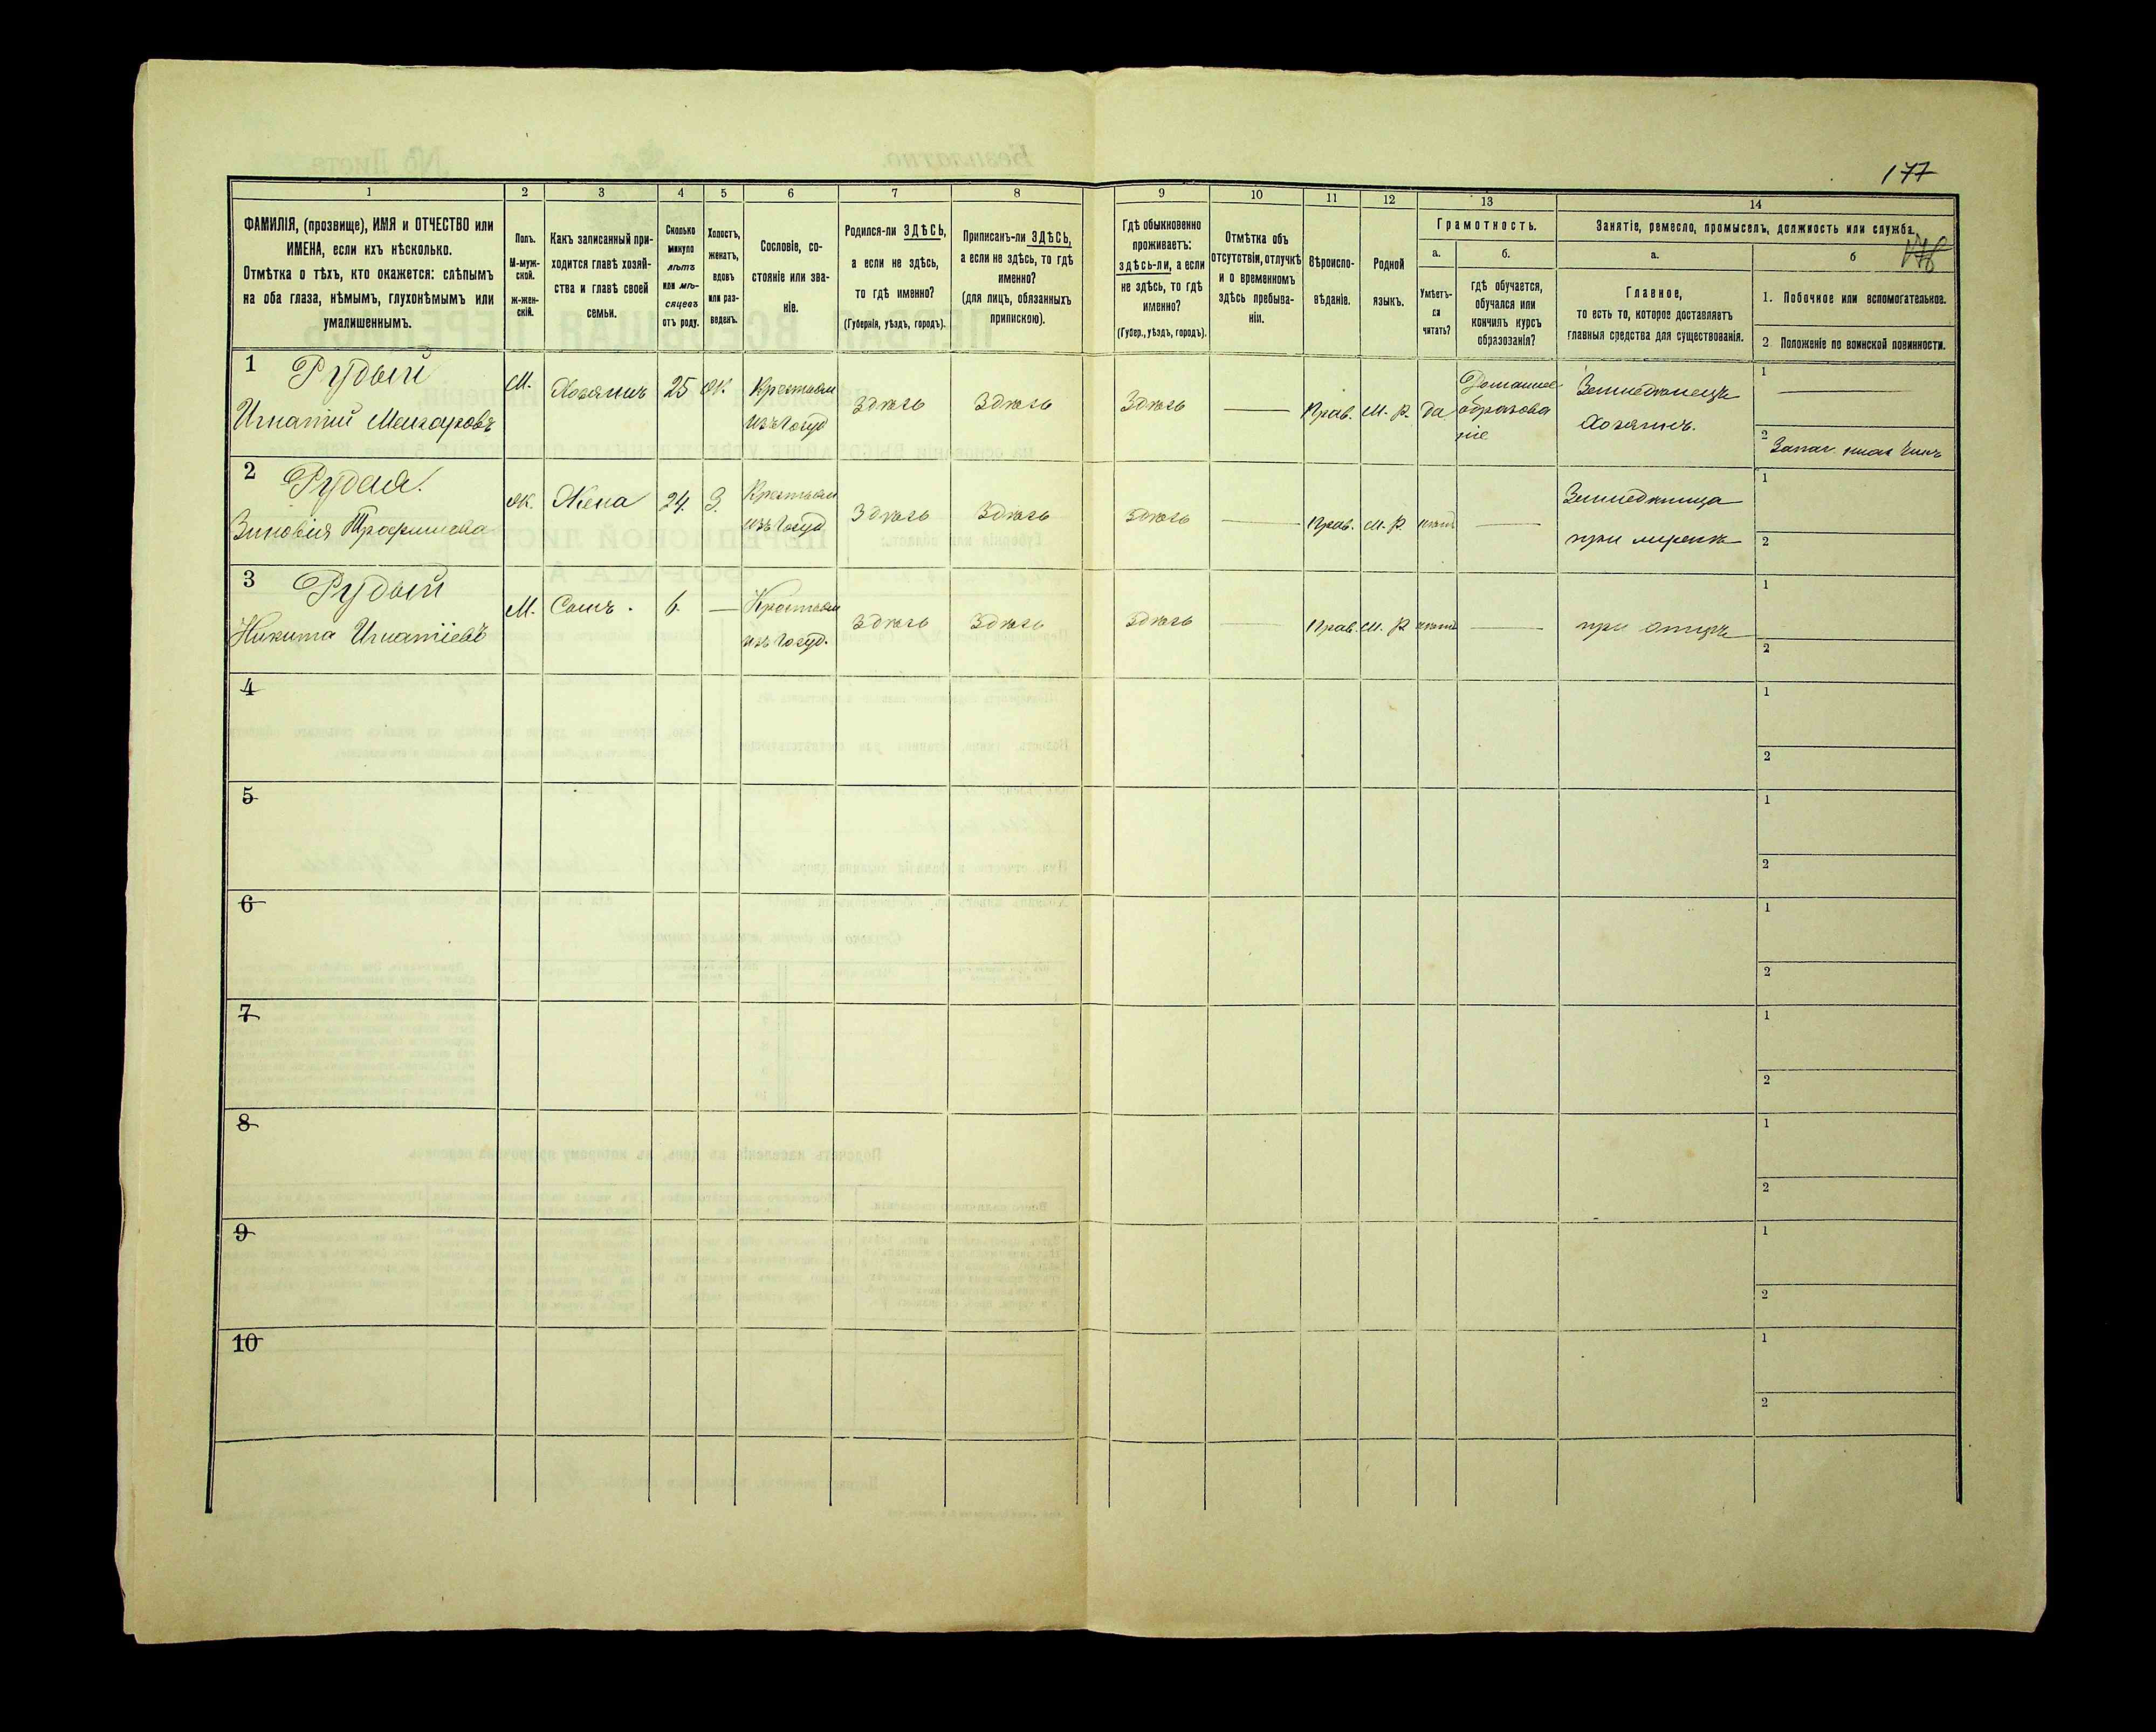 177
1 2 3 4 5 6 7 8 9 10 11 12 13 14
ФАМИЛІЯ, (прозвище), ИМЯ и ОТЧЕСТВО или
ИМЕНА, если ихъ нѣсколько.
Отмѣтка о тѣхъ, кто окажется: слѣпымъ
на оба глаза, нѣмымъ, глухонѣмымъ или
умалишеннымъ.
Полъ.
М-муж-
ской.
ж-жен-
скій.
Какъ записанный при-
ходится главѣ хозяй-
ства и главѣ своей
семьи.
Сколько
минуло
лѣтъ
или мѣ-
сяцевъ
отъ роду.
Холостъ,
женатъ,
вдовъ
или раз-
веденъ.
Сословіе, со-
стояніе или зва-
ніе.
Родился-ли ЗДѢСЬ,
а если не здѣсь,
то гдѣ именно?
(Губернія, уѣздъ, городъ).
Приписанъ-ли ЗДѢСЬ,
а если не здѣсь, то гдѣ
именно?
(для лицъ, обязанныхъ
припискою).
Гдѣ обыкновенно
проживаетъ:
здѣсь-ли, а если
не здѣсь, то гдѣ
именно?
(Губер., уѣздъ, городъ).
Отмѣтка объ
отсутствіи, отлучкѣ
и о временномъ
здѣсь пребыва-
ніи.
Вѣроиспо-
вѣданіе.
Родной
языкъ.
Грамотность.
а.
Умѣетъ-
ли
читать?
б.
гдѣ обучается,
обучался или
кончилъ курсъ
образованія?
Занятіе, ремесло, промыселъ, должность или служба.
а.
Главное,
то есть то, которое доставляетъ
главныя средства для существованія.
б
1. Побочное или вспомогательное.
2 Положеніе по воинской повинности.
1 Рудый
Игнатій
М.
Хозяинъ
25
Ж.
Крестьян
изъ Госуд
Здѣсь
Здѣсь
Здѣсь
Прав.
М. Р.
Да
Домашнее
образова
ніе
Земледѣлецъ
Хозяинъ.
1
2 Запас.
2 Рудая.
Зиновія Трофимова
Ж.
Жена
24.
З.
Крестьян
изъ Госуд
Здѣсь
Здѣсь
Здѣсь
Прав.
М. Р.
нѣтъ
при
1
2
3 Рудый
Никита Игнатіевъ
М.
Сынъ.
6.
Крестьян
изъ Госуд.
Здѣсь
Здѣсь
Здѣсь
Прав.
М. Р.
нѣтъ
при отцѣ
1
2
4
1
2
5
1
2
6
1
2
7
1
2
8
1
2
9
1
2
10
1
2